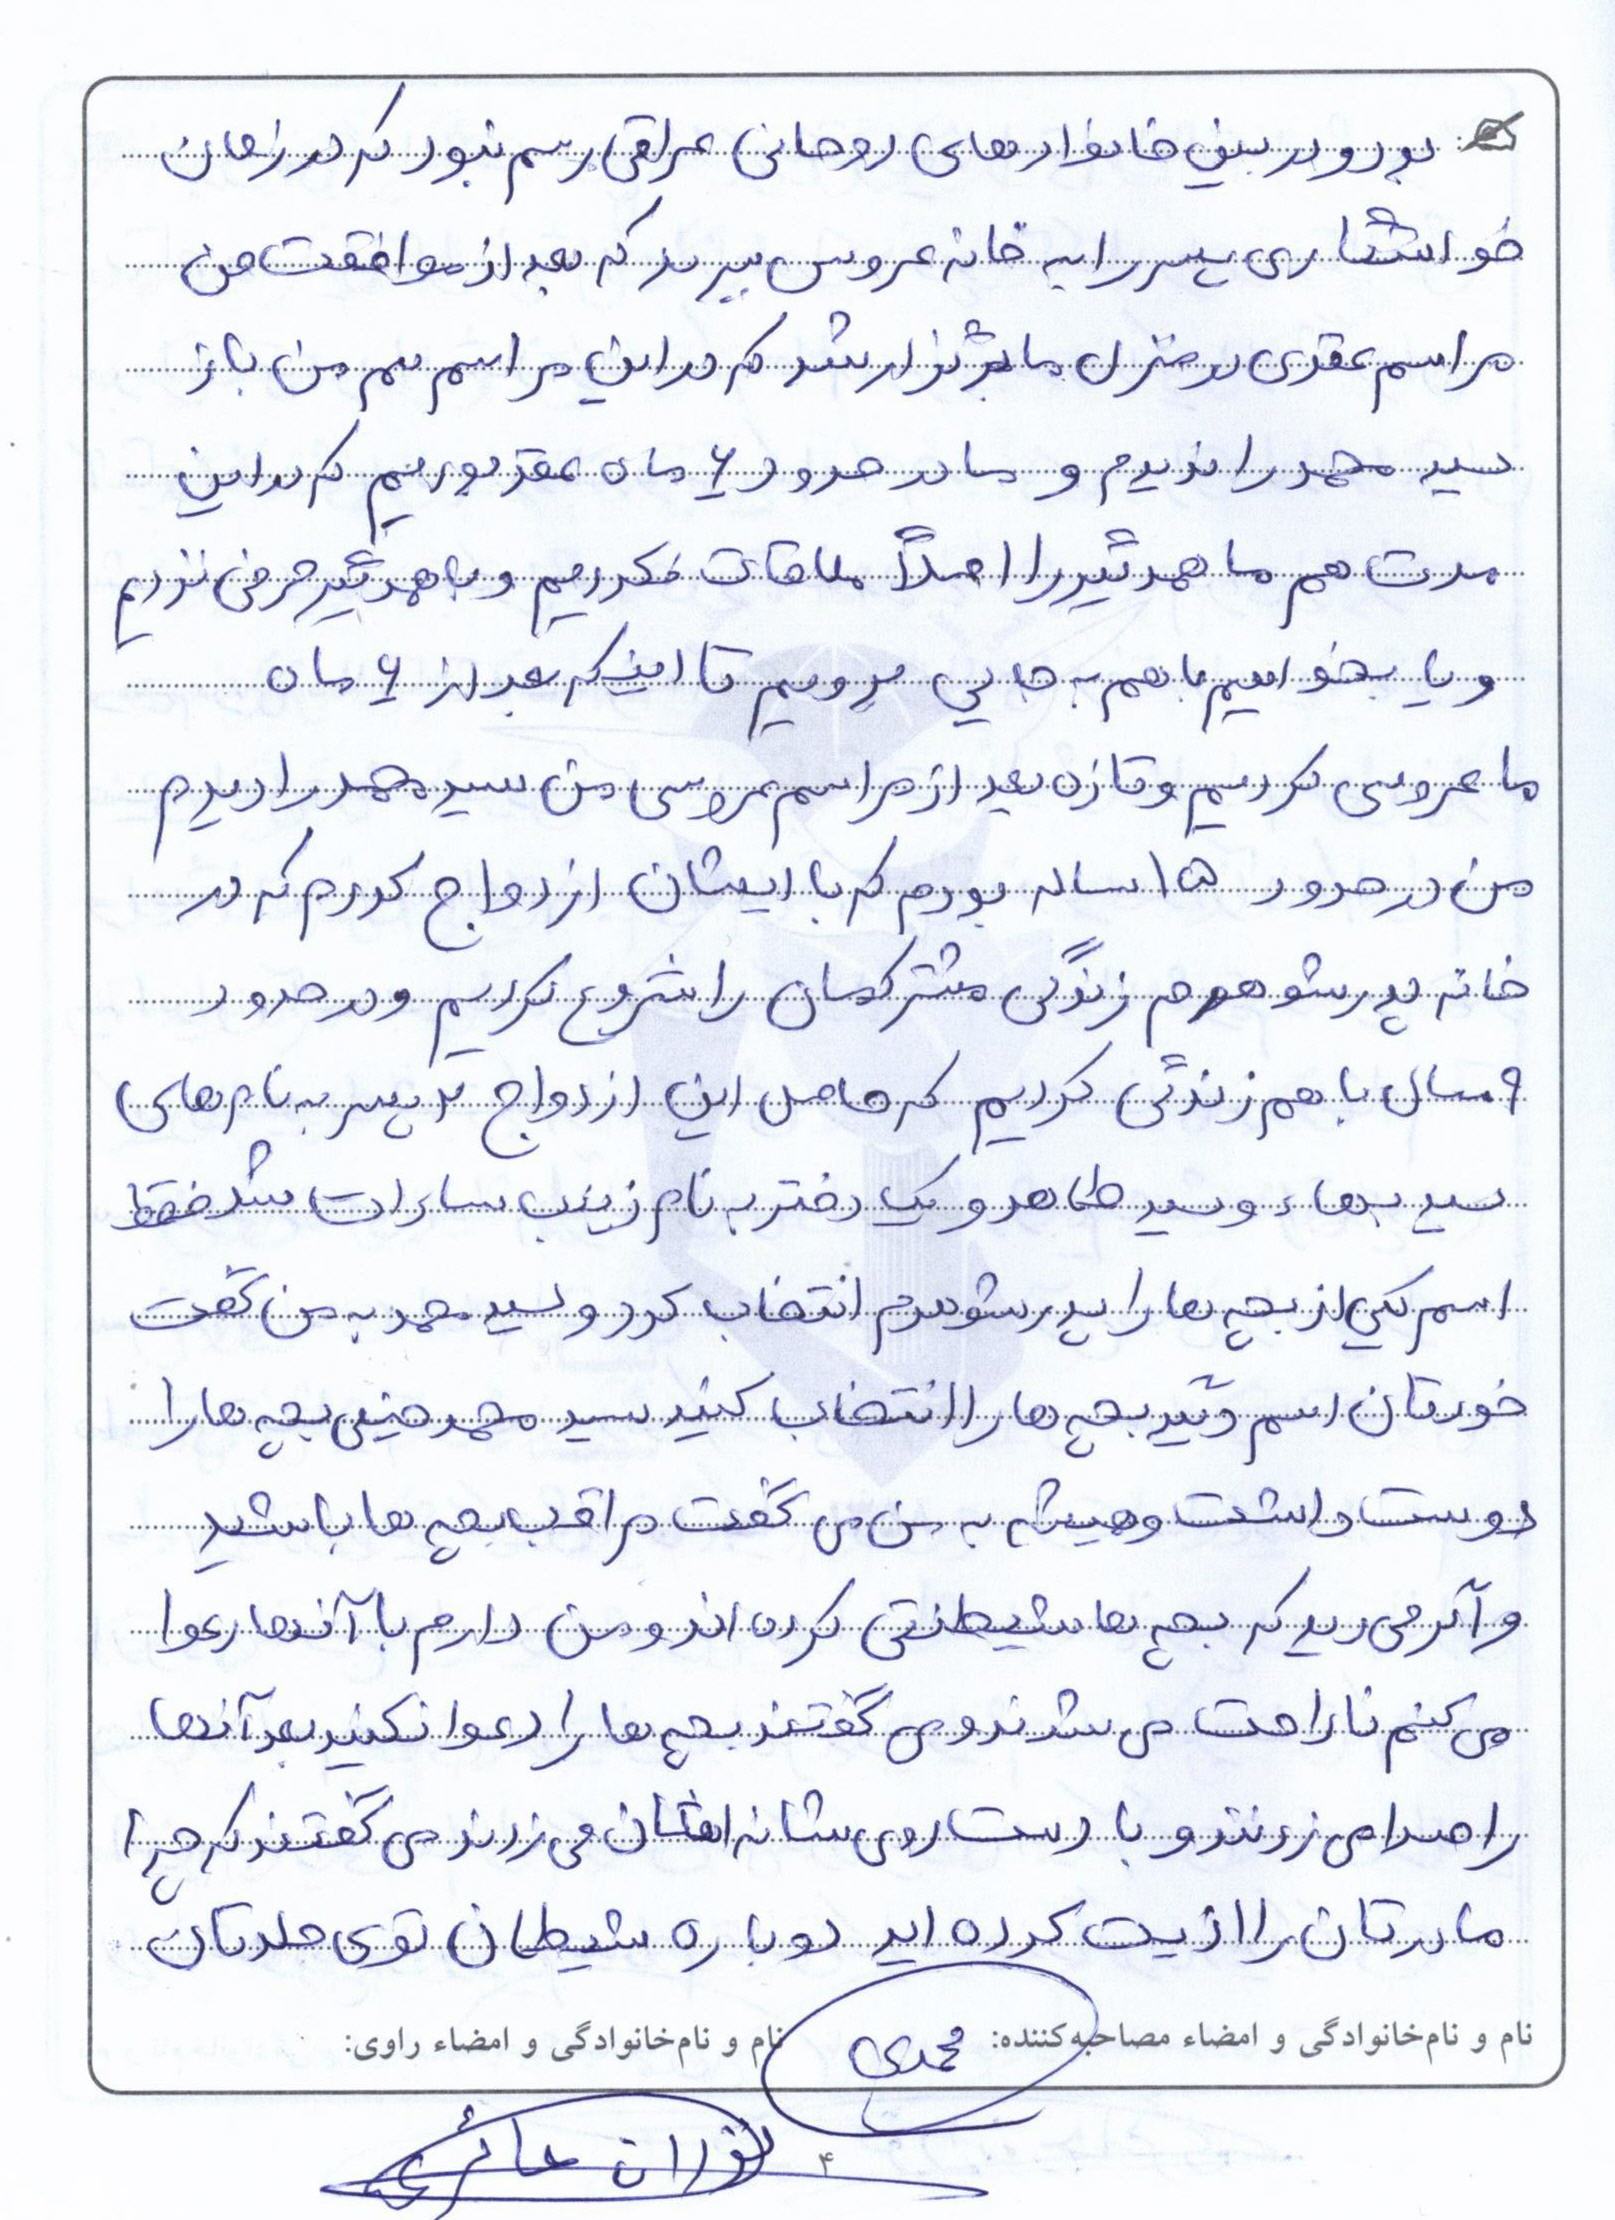 بود و در بین خانوادههای روحانی عراقی رسم نبود که در زمان
خواستگاری پسر را به خانه عروس ببرند که بعد از موافقت من
مراسم عقدی در منزل ما برگزار شد که در این مراسم هم من باز
سید محمد را ندیدم و ما در حدود ۶ ماه عقد بودیم که در این
مدت هم ما همدیگر را اصلاً ملاقات نکردیم و با همدیگر حرفی نزدیم
و یا بخواهیم با هم به جایی برویم تا اینکه بعد از ۶ ماه
ما عروسی کردیم و تازه بعد از مراسم عروسی من سید محمد را دیدم
من در حدود ۱۵ ساله بودم که با ایشان ازدواج کردم که در
خانه پدر شوهرم زندگی مشترکمان را شروع کردیم و در حدود
۹ سال با هم زندگی کردیم که حاصل این ازدواج ۲ پسر به نامهای
سید بهاء و سید طاهر و یک دختر به نام زینب سادات شد فقط
اسم یکی از بچه ها را پدر شوهرم انتخاب کرد و سید محمد به من گفت
خودتان اسم دیگر بچه ها را انتخاب کنید سید محمد خیلی بچه ها را
دوست داشت و همیشه به من می گفت مراقب بچه ها باشید
و اگر می دید که بچه ها شیطنتی کرده اند و من دارم با آنها دعوا
می کنم ناراحت می شدند و می گفتند بچه ها را دعوا نکنید بعد آنها
را صدا می زدند و با دست روی شانه اشان می زدند می گفتند که چرا
مادرتان را اذیت کرده اید دوباره شیطان توی جلدتان
نام و نامخانوادگی و امضاء مصاحبهکننده: محمدی نام و نامخانوادگی و امضاء راوی:
۴